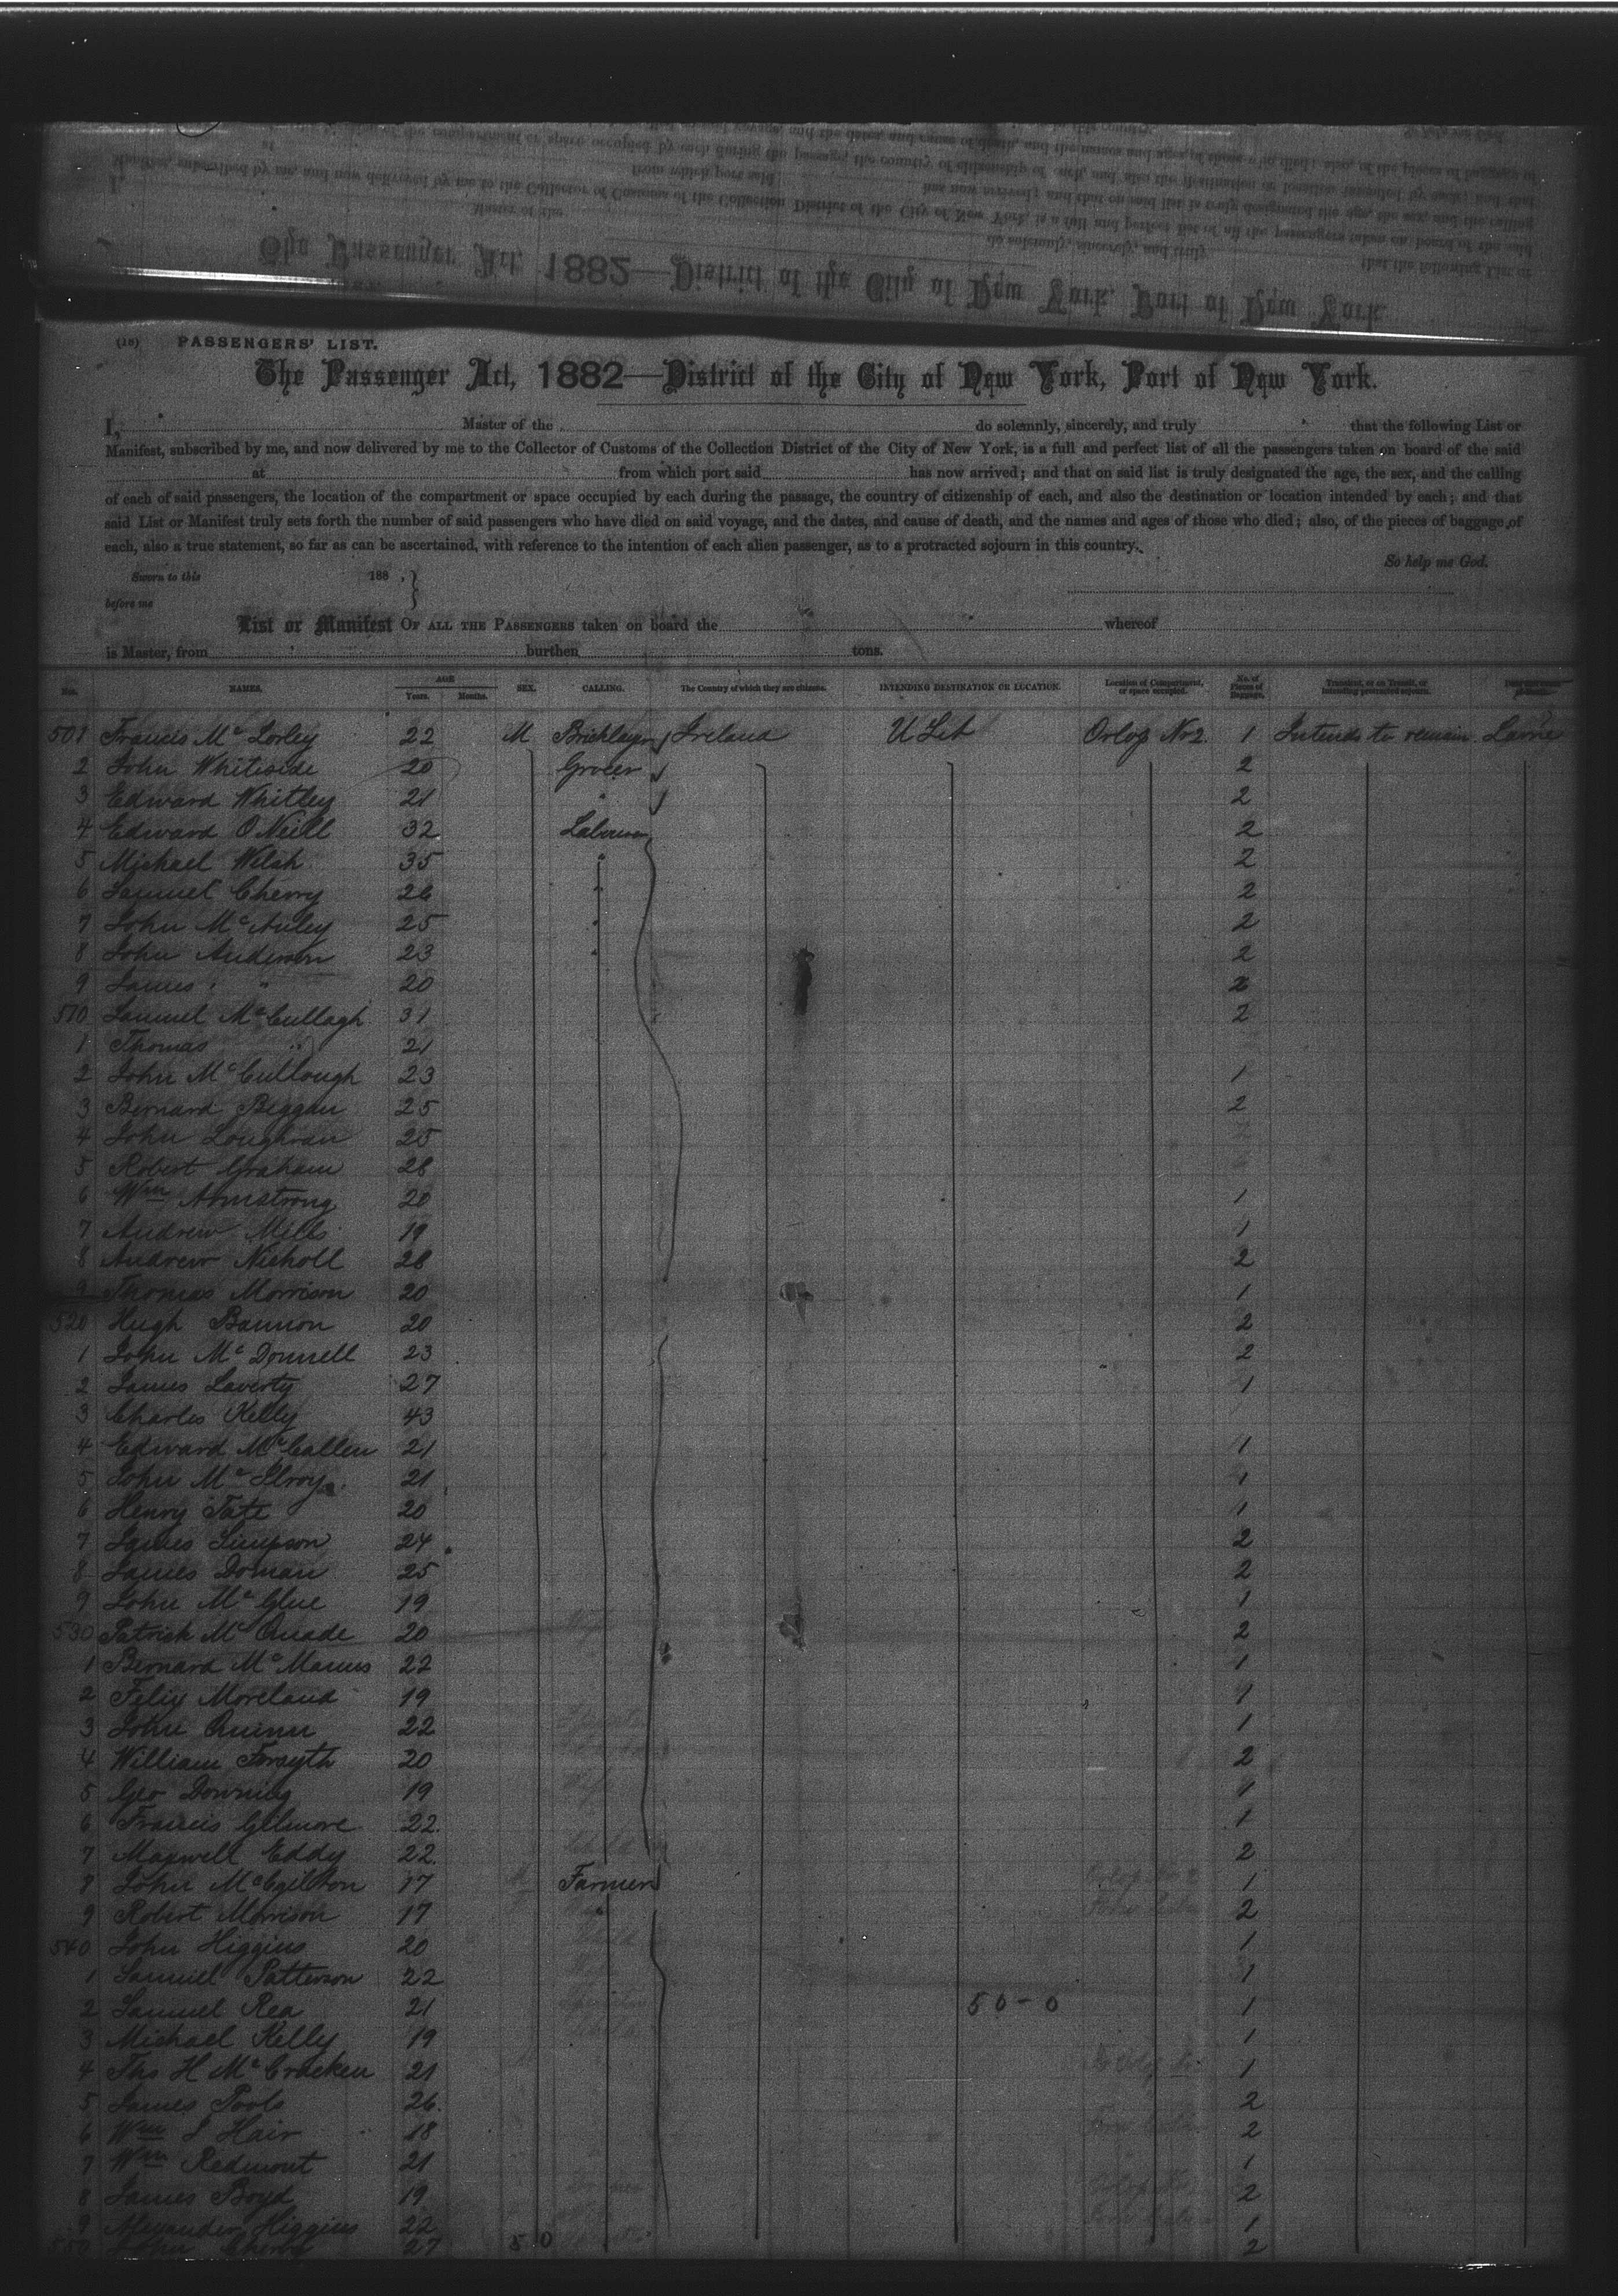 (18) PASSENGERS' LIST.
The Passenger Act, 1882—District of the City of New York, Port of New York.
I, Master of the do solemnly, sincerely, and truly that the following List or
Manifest, subscribed by me, and now delivered by me to the Collector of Customs of the Collection District of the City of New York, is a full and perfect list of all the passengers taken on board of the said
at from which port said has now arrived; and that on said list is truly designated the age, the sex, and the calling
of each of said passengers, the location of the compartment or space occupied by each during the passage, the country of citizenship of each, and also the destination or location intended by each; and that
said List or Manifest truly sets forth the number of said passengers who have died on said voyage, and the dates, and cause of death, and the names and ages of those who died; also, of the pieces of baggage of
each, also a true statement, so far as can be ascertained, with reference to the intention of each alien passenger, as to a protracted sojourn in this country.
So help me God.
Sworn to this 188
before me
List or Manifest OF ALL THE PASSENGERS taken on board the whereof
is Master, from burthen tons.
No. NAMES. AGE Years. Months. SEX. CALLING. The Country of which they are citizens. INTENDING DESTINATION OR LOCATION. Location of Compartment, or space occupied. No. of Pieces of Baggage. Transient, or in Transit, or intending protracted sojourn.
501 Francis McSorley 22 M Bricklayer Ireland U Sts Orlop No 2. 1 Intends to remain Larne
2 John Whiteside 20 Grocer 2
3 Edward Whitley 21 " 2
4 Edward O'Neill 32 Labourer 2
5 Michael Welsh 35 " 2
6 Samuel Cherry 26 " 2
7 John McAuley 25 " 2
8 John Anderson 23 " 2
9 James " 20 2
510 Samuel McCullagh 31 2
1 Thomas " 21
2 John McCullough 23 1
3 Bernard Beggan 25 2
4 John Loughran 25
5 Robert Graham 28
6 Wm Armstrong 20 1
7 Andrew Mills 19 1
8 Andrew Nicholl 28 2
9 Thomas Morrison 20 1
520 Hugh Bannon 20 2
1 John McDonnell 23 2
2 James Laverty 27 1
3 Charles Kelly 43
4 Edward McCallen 21 1
5 John McIlroy 21 1
6 Henry Tate 20 1
7 James Simpson 24 2
8 James Doman 25 2
9 John McGlue 19 1
530 Patrick McQuade 20 2
1 Bernard McManus 22 1
2 Felix Moreland 19 1
3 John Quinn 22 1
4 William Forsyth 20 2
5 Geo Downing 19 1
6 Francis Gilmore 22 1
7 Maxwell Eddy 22 2
8 John McGilton 17 Farmer 1
9 Robert Morrison 17 " 2
540 John Higgins 20 1
1 Samuel Patterson 22 1
2 Samuel Rea 21 50-0 1
3 Michael Kelly 19 1
4 Ths H McCracken 21 1
5 James Pools 26 2
6 Wm S Hair 18 2
7 Wm Redmont 21 1
8 James Boyd 19 2
9 Alexander Higgins 22 1
550 John Cherry 27 50 2